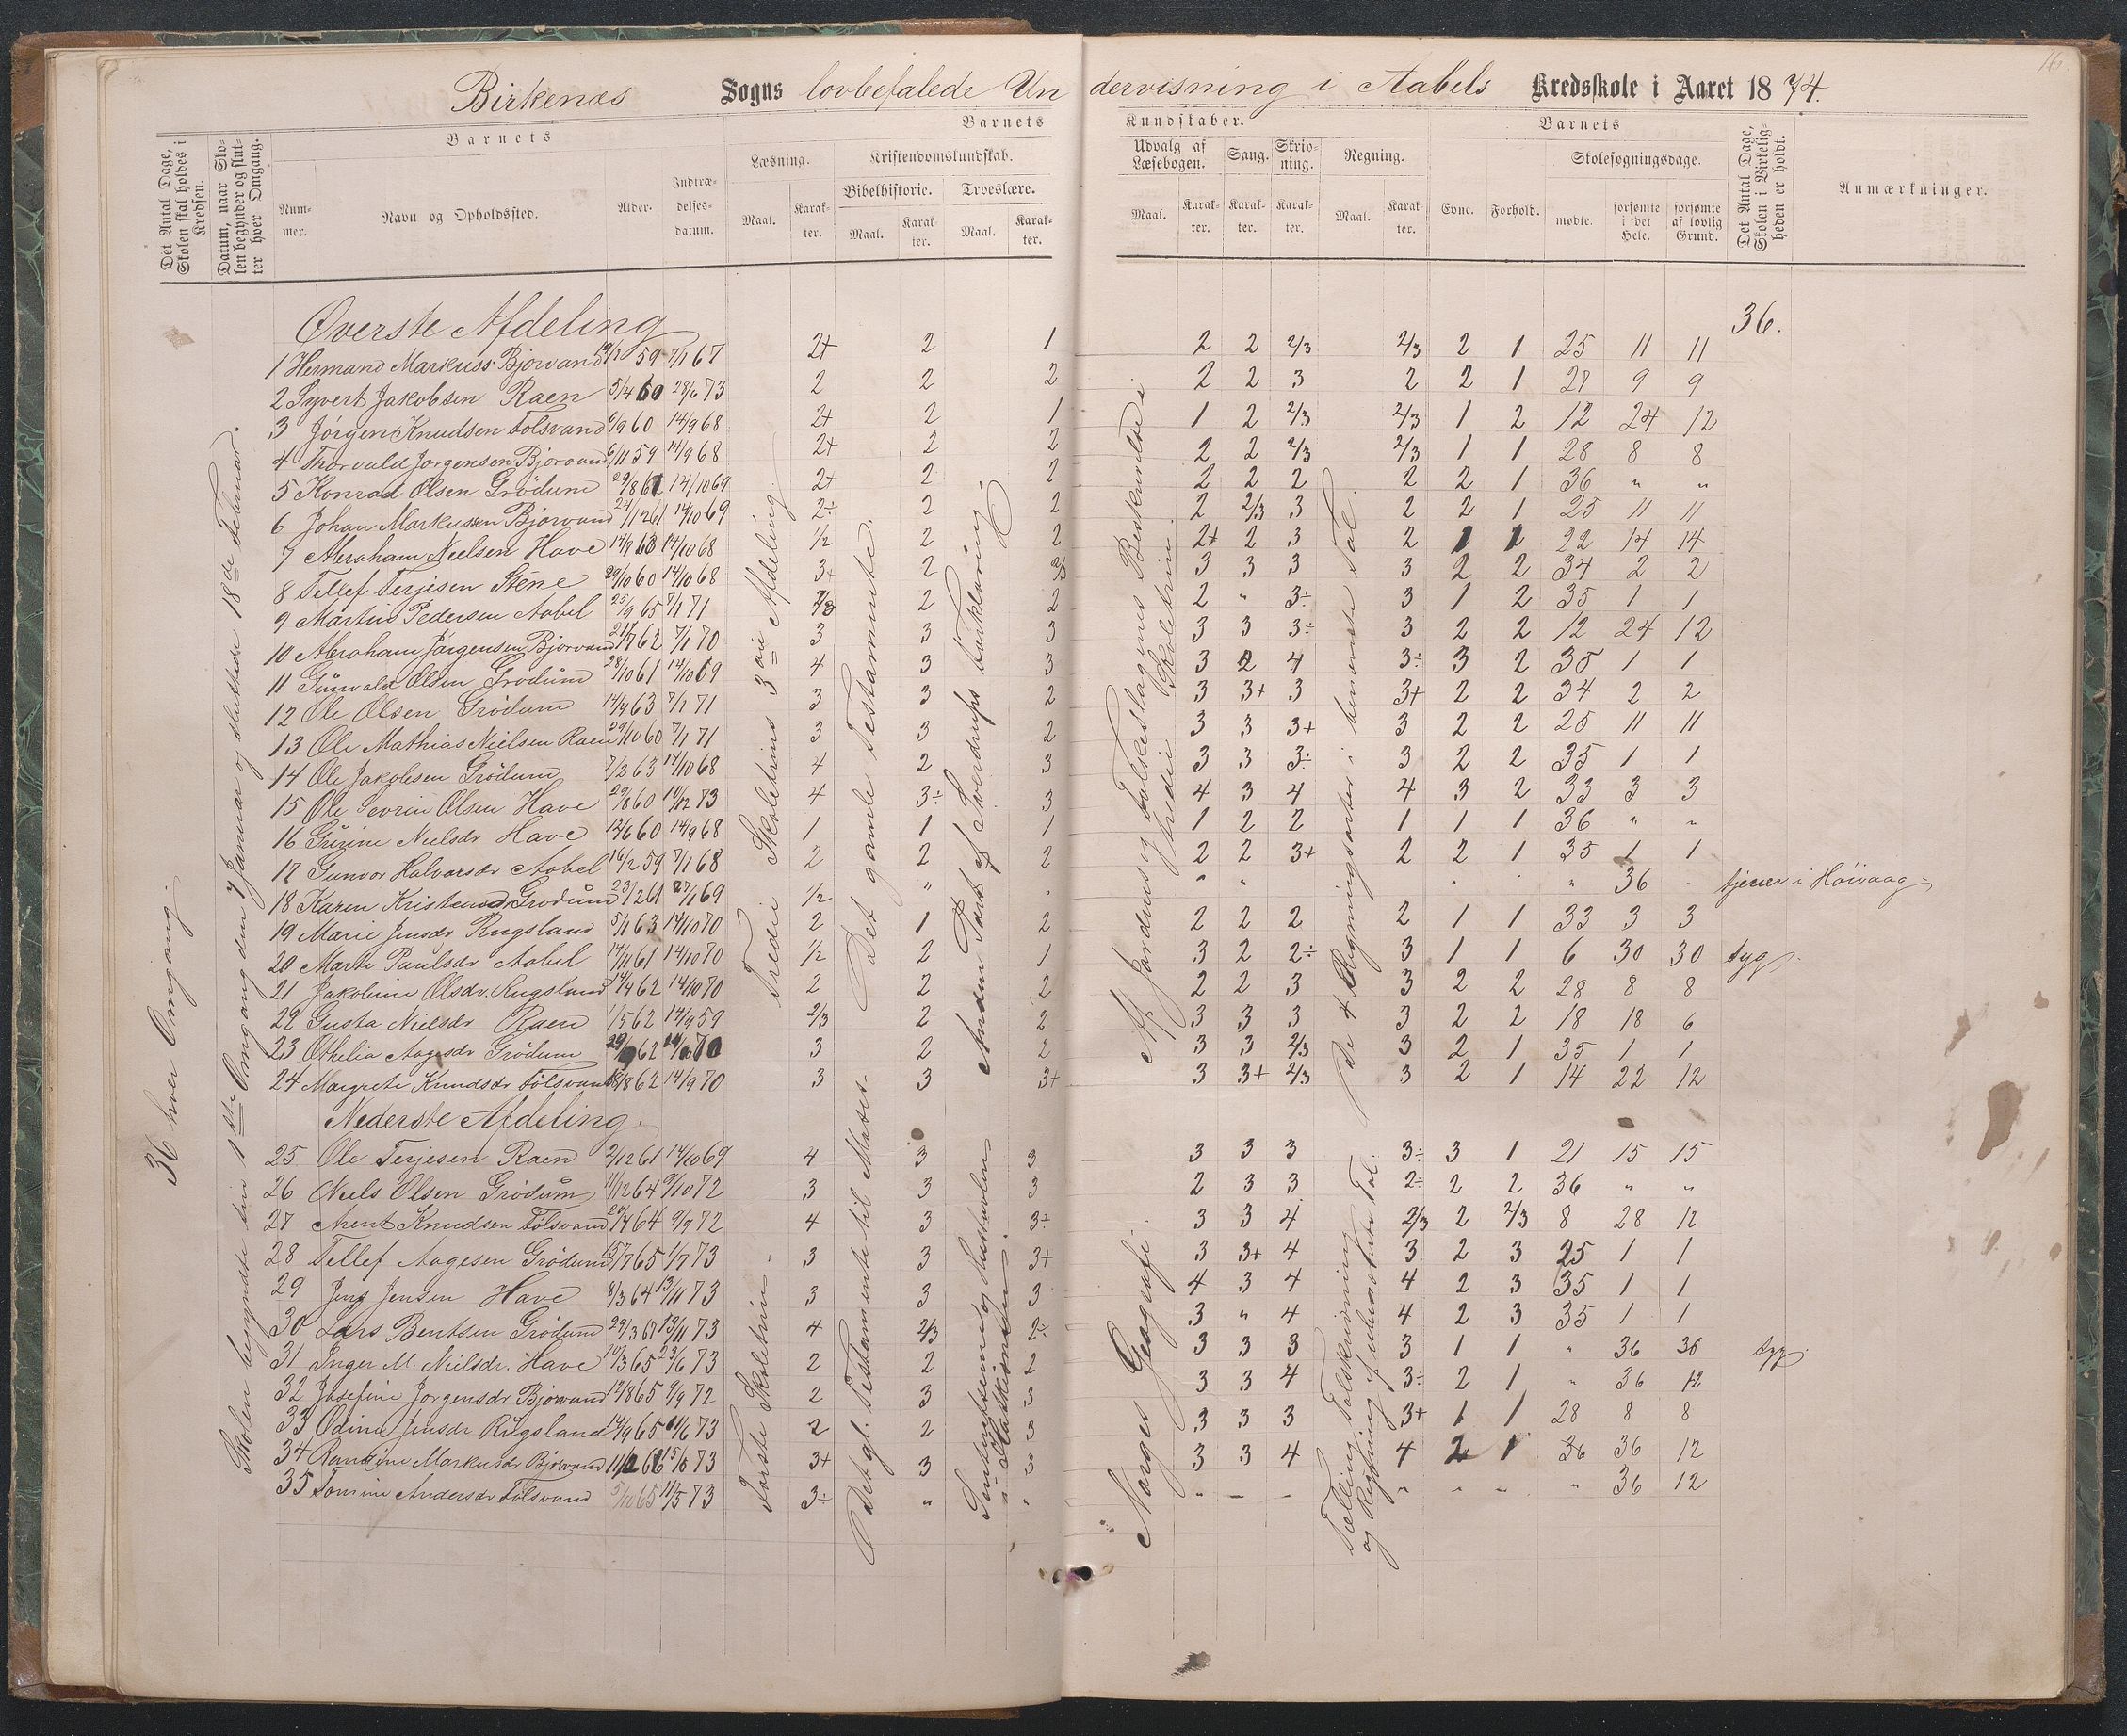 16
Birkenæs Sogns lovbefalede Undervisning i Aabels Kredsskole i Aaret 1874.
Det Antal Dage, Skolen skal holdes i Kredsen.
Datum, naar Skolen begynder og slutter hver Omgang.
Barnets
Nummer.
Navn og Opholdssted.
Alder.
Indtrædelsesdatum.
Barnets Kundskaber.
Læsning.
Maal.
Karakter.
Kristendomskundskab.
Bibelhistorie.
Maal.
Karakter.
Troeslære.
Maal.
Karakter.
Udvalg af Læsebogen.
Maal.
Karakter.
Sang.
Karakter.
Skrivning.
Karakter.
Regning.
Maal.
Karakter.
Barnets
Evne.
Forhold.
Skolesøgningsdage.
mødte.
forsømte i det Hele.
forsømte af lovlig Grund.
Det Antal Dage, Skolen i Virkeligheden er holdt.
Anmærkninger.
36 hver Omgang.
Skolen begyndte sin 1ste Omgang den 7 Januar og sluttede 18de Februar.
Tredie Skoletrins 3die Afdeling.
Det gamle Testamente.
Anden Part af Sverdrups Forklaring
Af Jordens og Folkeslagenes Beskrivelse i tredie Skoletrin.
De 4 Regningsarter i benævnte Tal.
36.
Øverste Afdeling
1 Hermand Markuss. Bjorvand 19/7 59 7/1 67 2+ 2 1 2 2 2/3 2/3 2 1 25 11 11
2 Syvert Jakobsen Raen 5/4 60 28/6 73 2 2 2 2 2 3 2 2 1 27 9 9
3 Jörgen Knudsen Fölsvand 6/9 60 14/9 68 2+ 2 1 1 2 2/3 2/3 1 2 12 24 12
4 Thorvald Jorgensen Bjorvand 6/11 59 14/9 68 2+ 2 2 2 2 2/3 2/3 1 1 28 8 8
5 Konrad Olsen Grödum 29/8 61 14/10 69 2+ 2 2 2 2 2 2 2 1 36 " "
6 Johan Markussen Bjorvand 24/12 61 14/10 69 2÷ 2 2 2 2/3 3 2 2 1 25 11 11
7 Abraham Nielsen Have 14/9 60 14/10 68 1/2 2 2 2+ 2 3 2 1 1 22 14 14
8 Tellef Terjesen Stene 29/10 60 14/10 68 3+ 2 2/3 3 3 3 3 2 2 34 2 2
9 Martin Pedersen Aabel 25/9 65 7/1 71 2/3 2 2 2 " 3÷ 3 1 2 35 1 1
10 Abraham Jörgensen Bjorvand 21/7 62 7/1 70 3 3 3 3 3 3÷ 3 2 2 12 24 12
11 Gunvald Olsen Grödum 28/10 61 14/10 69 4 3 3 3 2 4 3÷ 3 2 35 1 1
12 Ole Olsen Grödum 14/4 63 7/1 71 3 3 2 3 3+ 3 3+ 2 2 34 2 2
13 Ole Mathias Nielsen Raen 29/10 60 7/1 71 3 3 2 3 3 3+ 3 2 2 25 11 11
14 Ole Jakobsen Grödum 7/2 63 14/10 68 4 2 3 3 3 3÷ 3 2 2 35 1 1
15 Ole Sevrin Olsen Have 29/8 60 10/12 73 4 3÷ 3 4 3 4 4 3 2 33 3 3
16 Gürine Nielsdr Have 12/6 60 14/9 68 1 1 1 1 2 2 1 1 1 36 " "
17 Gunvor Halvorsdr Aabel 16/2 59 7/1 68 2 2 2 2 2 3+ 2 2 1 35 1 1
18 Karen Kristensdr Grodum 23/2 61 27/1 69 1/2 " " " " " " 36 tjener i Höivaag.
19 Marie Jensdr Rugsland 5/1 63 14/10 70 2 1 2 2 2 2 2 1 1 33 3 3
20 Marte Paulsdr Aabel 14/11 61 14/10 70 1/2 2 1 3 2 2÷ 3 1 1 6 30 30 syg.
21 Jakobine Olsdr. Rugsland 14/4 62 14/10 70 2 2 2 2 2 3 3 2 2 28 8 8
22 Gusta Nielsdr Raen 1/5 62 14/9 59 2/3 2 2 3 3 3 3 2 2 18 18 6
23 Othelia Aagesdr Grödum 62 70 3 2 2 3 3 2/3 3 2 1 35 1 1
24 Margrete Knudsdr Fölsvand 18/8 62 14/9 70 3 3 3+ 3 3+ 2/3 3 2 1 14 22 12
Nederste Afdeling.
Förste Skoletrin.
Det gl. Testamente til
Norges Geografi.
25 Ole Terjesen Raen 2/12 61 14/10 69 4 3 3 3 3 3 3÷ 3 1 21 15 15
26 Niels Olsen Grödum 11/12 64 9/10 72 3 3 3 2 3 3 2÷ 2 2 36 " "
27 Arent Knudsen Fölsvand 20/4 64 9/9 72 4 3 3÷ 3 3 4 2/3 2 2/3 8 28 12
28 Tellef Aagesen Grödum 15/7 65 1/7 73 3 3 3+ 3 3+ 4 3 2 3 25 1 1
29 Jens Jensen Have 8/3 64 13/11 73 3 3 3 4 3 4 4 2 3 35 1 1
30 Lars Bentsen Grödum 29/3 67 13/11 73 4 2/3 2÷ 3 " 4 4 2 3 35 1 1
31 Inger M. Nielsdr. Have 10/3 65 23/6 73 2 2 2 3 3 3 3 1 1 " 36 36 syg.
32 Josefine Jorgensdr Bjorvand 12/8 65 9/9 72 2 3 3 3 3 4 3÷ 2 1 " 36 12
33 Odine Jensdr Rugsland 14/9 65 11/6 73 2 2 3 3 3 3 3+ 1 1 28 8 8
34 Markusdr Bjorvand 73 3+ 3 3 3 3 4 4 2 1 36 36 12
35 Tomine Andersdr Fölsvand 5/10 65 11/5 73 3÷ " " " – – " " " " 36 12
Tælling, Talskrivning